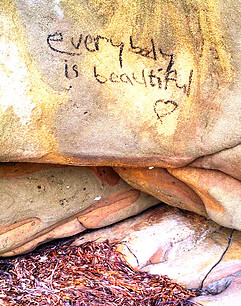 everybody
is beautiful
♡